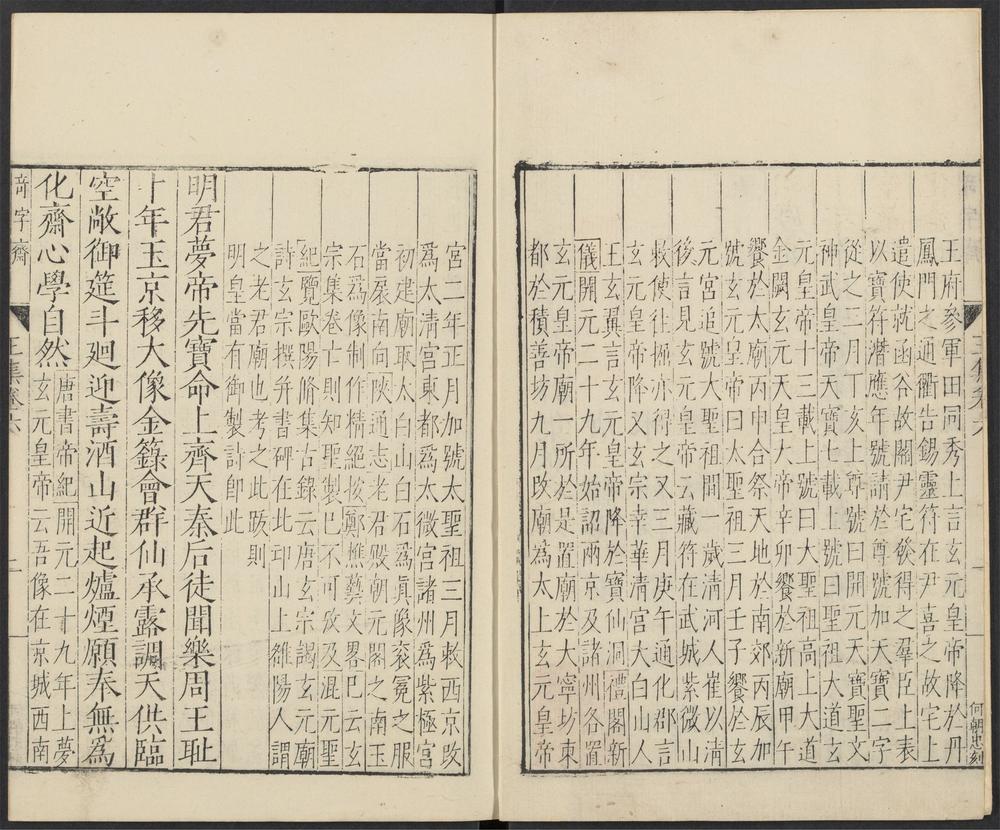 王府參軍田同秀上言玄元皇帝降於丹
鳳門之通衢告錫靈符在尹喜之故宅上
遣使就函谷故關尹宅發得之羣臣上表
以寶符潛應年號請於尊號加天寶二字
從之三月丁亥上尊號曰開元天寶聖文
神武皇帝天寶七載上號曰聖祖大道玄
元皇帝十三載上號曰大聖祖高上大道
金闕玄元天皇大帝辛卯饗於新廟甲午
饗於太廟丙申合祭天地於南郊丙辰加
號玄元皇帝曰太聖祖三月壬子饗於玄
元宮追號大聖祖間一歲清河人崔以清
後言見玄元皇帝云藏符在武城紫微山
敕使往掘亦得之又三月庚午通化郡言
玄元皇帝降又玄宗幸華清宮太白山人
王玄翼言玄元皇帝降於寶仙洞禮閣新
儀開元二十九年始詔兩京及諸州各置
玄元皇帝廟一所於是置廟於大寧坊東
都於積善坊九月改廟為太上玄元皇帝
何朝忠刻
宮二年正月加號太聖祖三月敕西京改
為太清宮東都為太微宮諸州為紫極宮
初建廟取太白山白石為眞像袞冕之服
當扆南向陝通志老君殿朝元閣之南玉
石為像制作精絕按鄭樵藝文畧巳云玄
宗集卷亡則知聖製巳不可攷及混元聖
紀覽歐陽脩集古錄云唐玄宗謁玄元廟
詩玄宗撰幷書碑在北邙山上雒陽人謂
之老君廟也考之此跋則
明皇當有御製詩即此
明君夢帝先寶命上齊天秦后徒聞樂周王耻
卜年玉京移大像金籙會群仙承露調天供臨
空敞御筵斗廻迎壽酒山近起爐煙願奉無為
化齋心學自然唐書帝紀開元二十九年上夢
玄元皇帝云吾像在京城西南
奇字齋
王集卷六
二